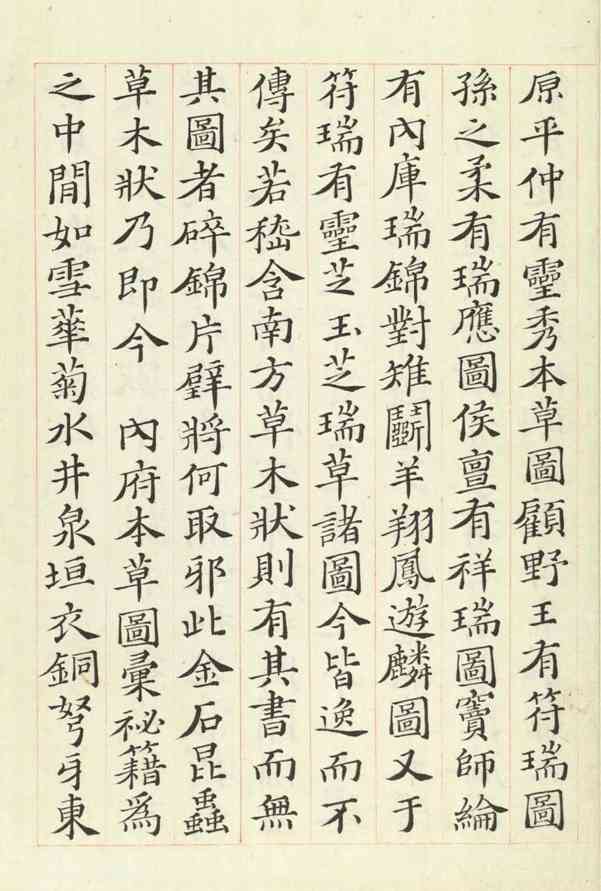 原平仲有靈秀本草圖顧野王有符瑞圖
孫之柔有瑞應圖侯亶有祥瑞圖竇師綸
有內庫瑞錦對雉鬭羊翔鳳遊麟圖又于
符瑞有靈芝玉芝瑞草諸圖今皆逸而不
傳矣若嵇含南方草木狀則有其書而無
其圖者碎錦片璧將何取邪此金石昆蟲
草木狀乃即今 內府本草圖彙祕籍為
之中間如雪華菊水井泉垣衣銅弩牙東